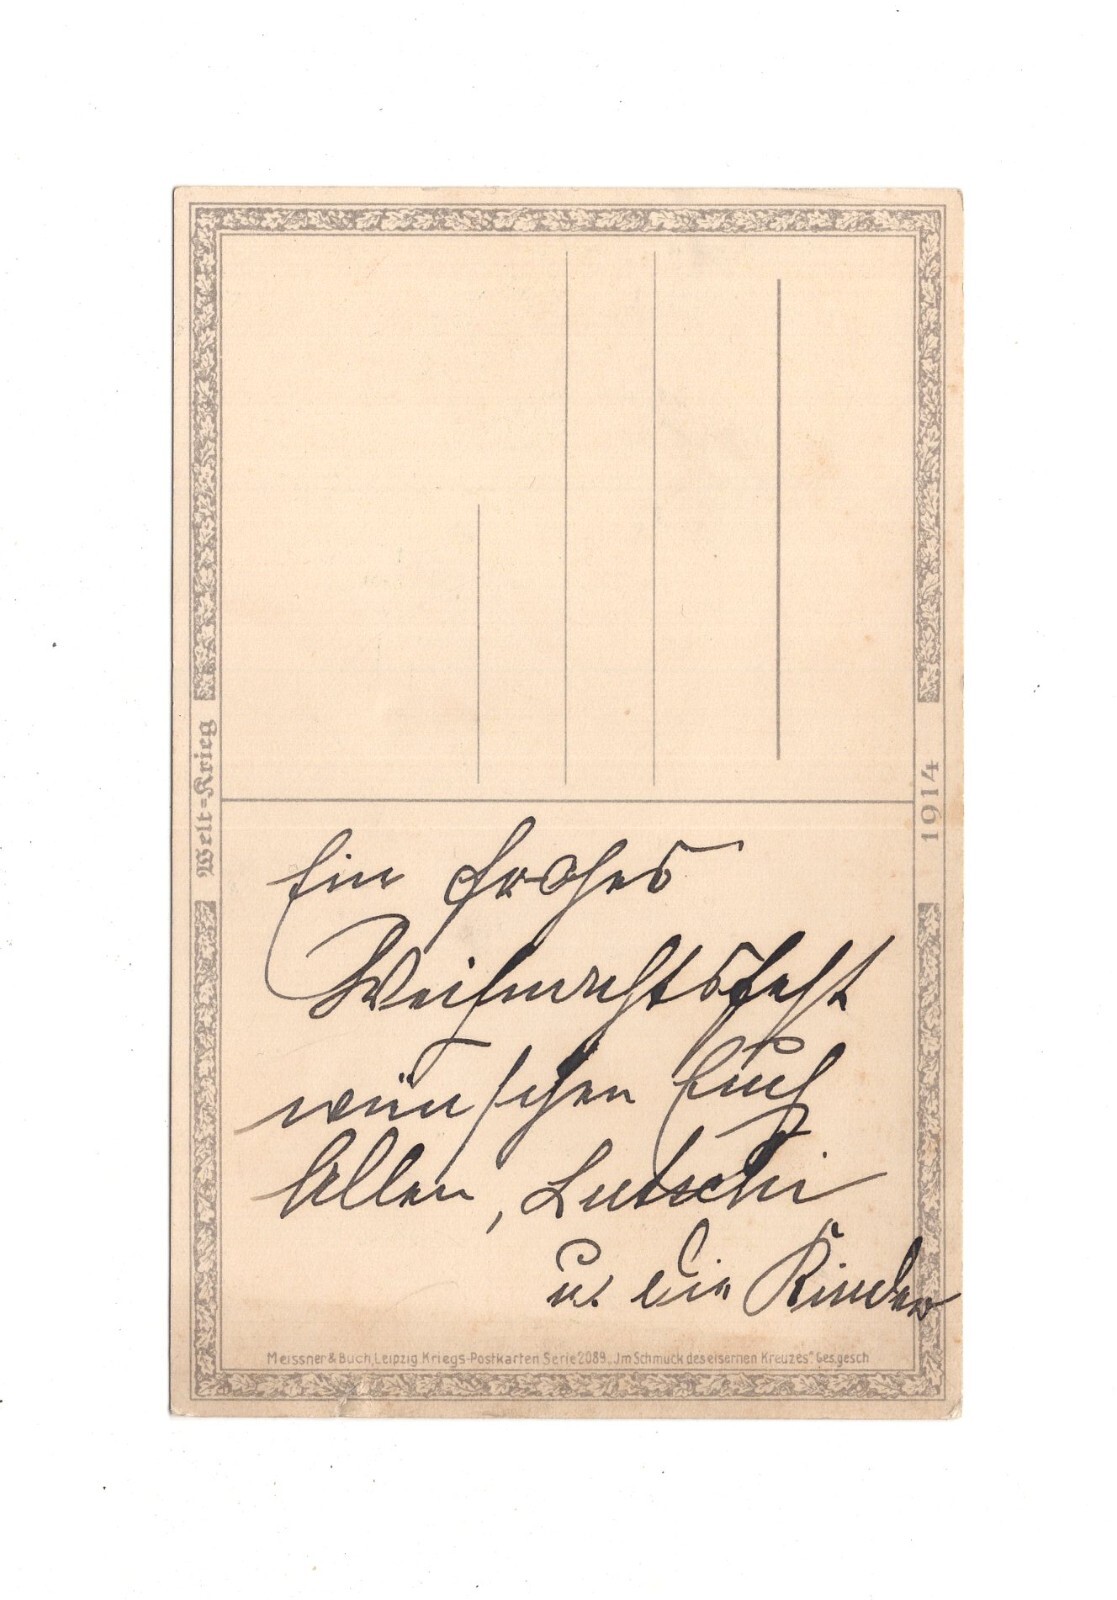 Welt=Krieg
1914
Ein frohes
Weihnachtsfest
wünschen Euch
Allen, Lutschi
u. die Kinder
Meissner & Buch, Leipzig. Kriegs-Postkarten Serie 2089. „Jm Schmuck des eisernen Kreuzes" Ges. gesch